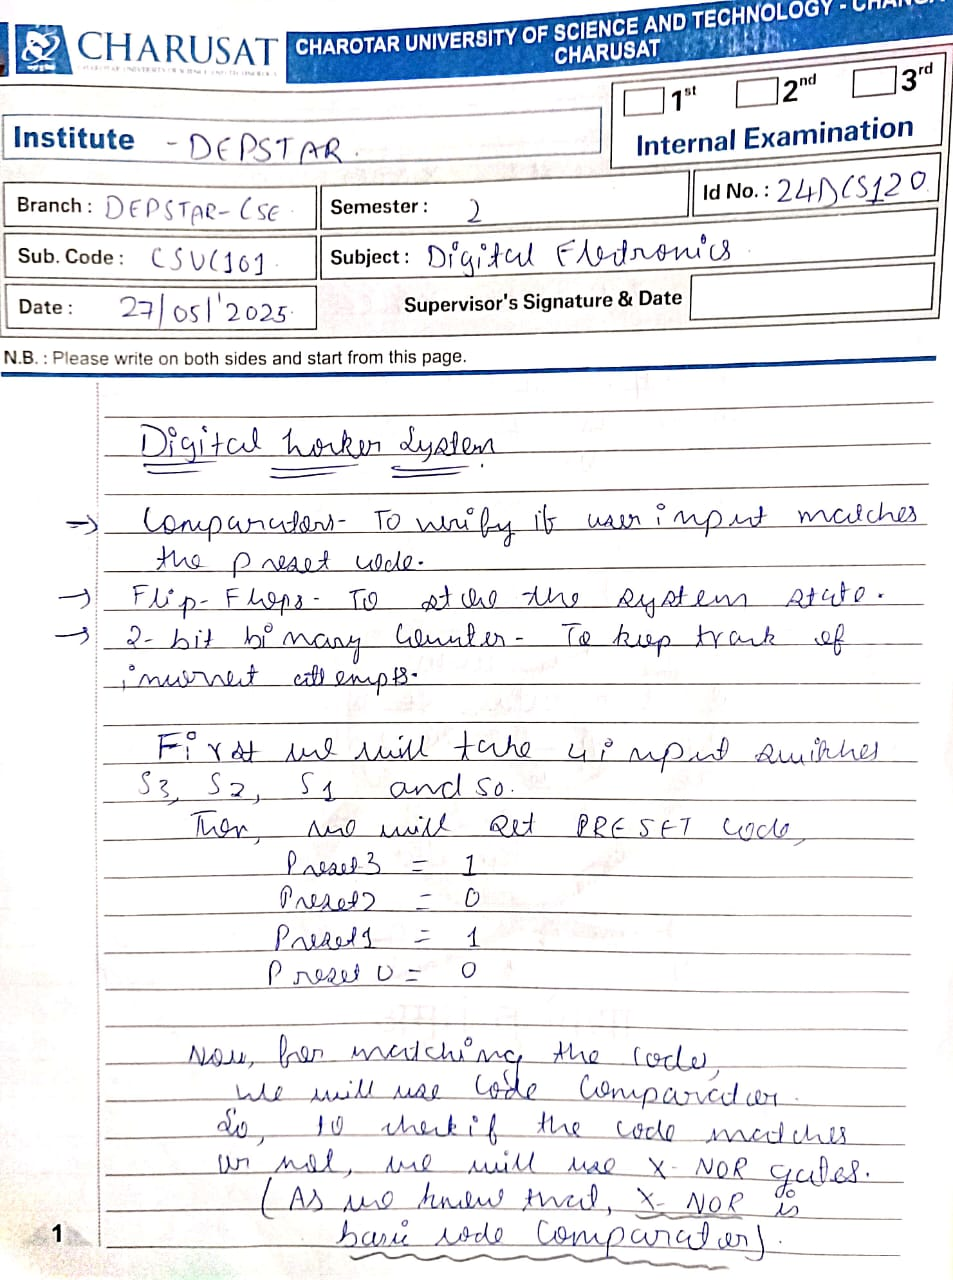 CHARUSAT
CHAROTAR UNIVERSITY OF SCIENCE AND TECHNOLOGY - CHANGA
CHARUSAT
1st 2nd 3rd
Internal Examination
Institute - DEPSTAR.
Branch : DEPSTAR-CSE.
Semester : 2
Id No. : 24DCS120
Sub. Code : CSUC101
Subject : Digital Electronics
Date : 27/05/2025.
Supervisor's Signature & Date
N.B. : Please write on both sides and start from this page.
Digital Locker System.
→ Comparators- To verify if user input matches
the preset code.
→ Flip-Flops- To store the system state.
→ 2-bit binary Counter- To keep track of
incorrect attempts.
First we will take 4 input switches
S3, S2, S1 and S0.
Then, we will set PRESET code,
Preset3 = 1
Preset2 = 0
Preset1 = 1
Preset0 = 0
Now, for matching the code,
We will use Code Comparator.
So, to check if the code matches
or not, we will use X-NOR gates.
(As we know that, X-NOR is
basic code comparator).
1